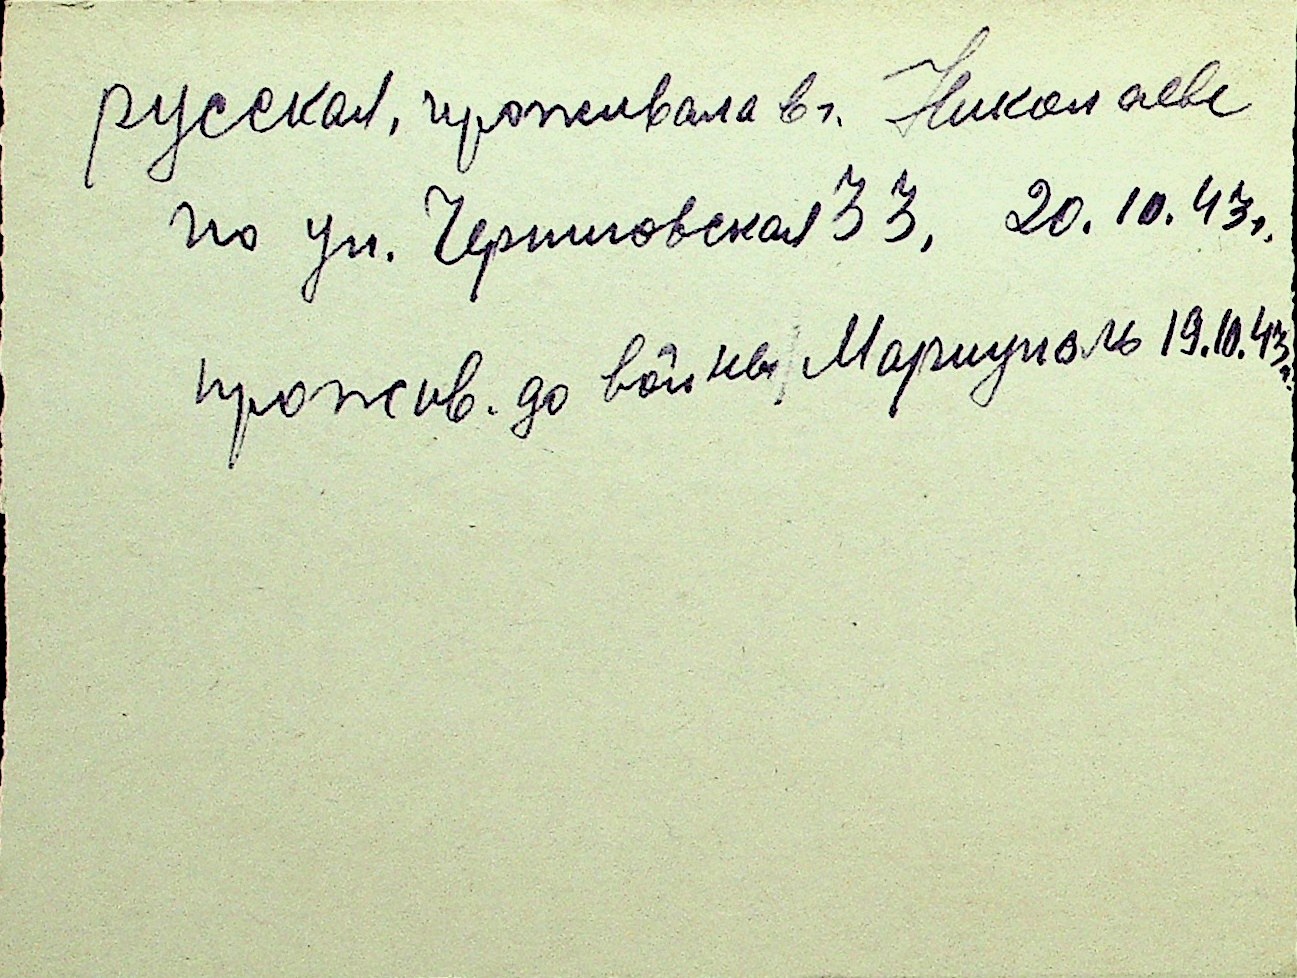 русская, проживала в г. Николаеве
по ул. Черниговская 33, 20.10.43г.
прожив. до войны Мариуполь 19.10.43г.